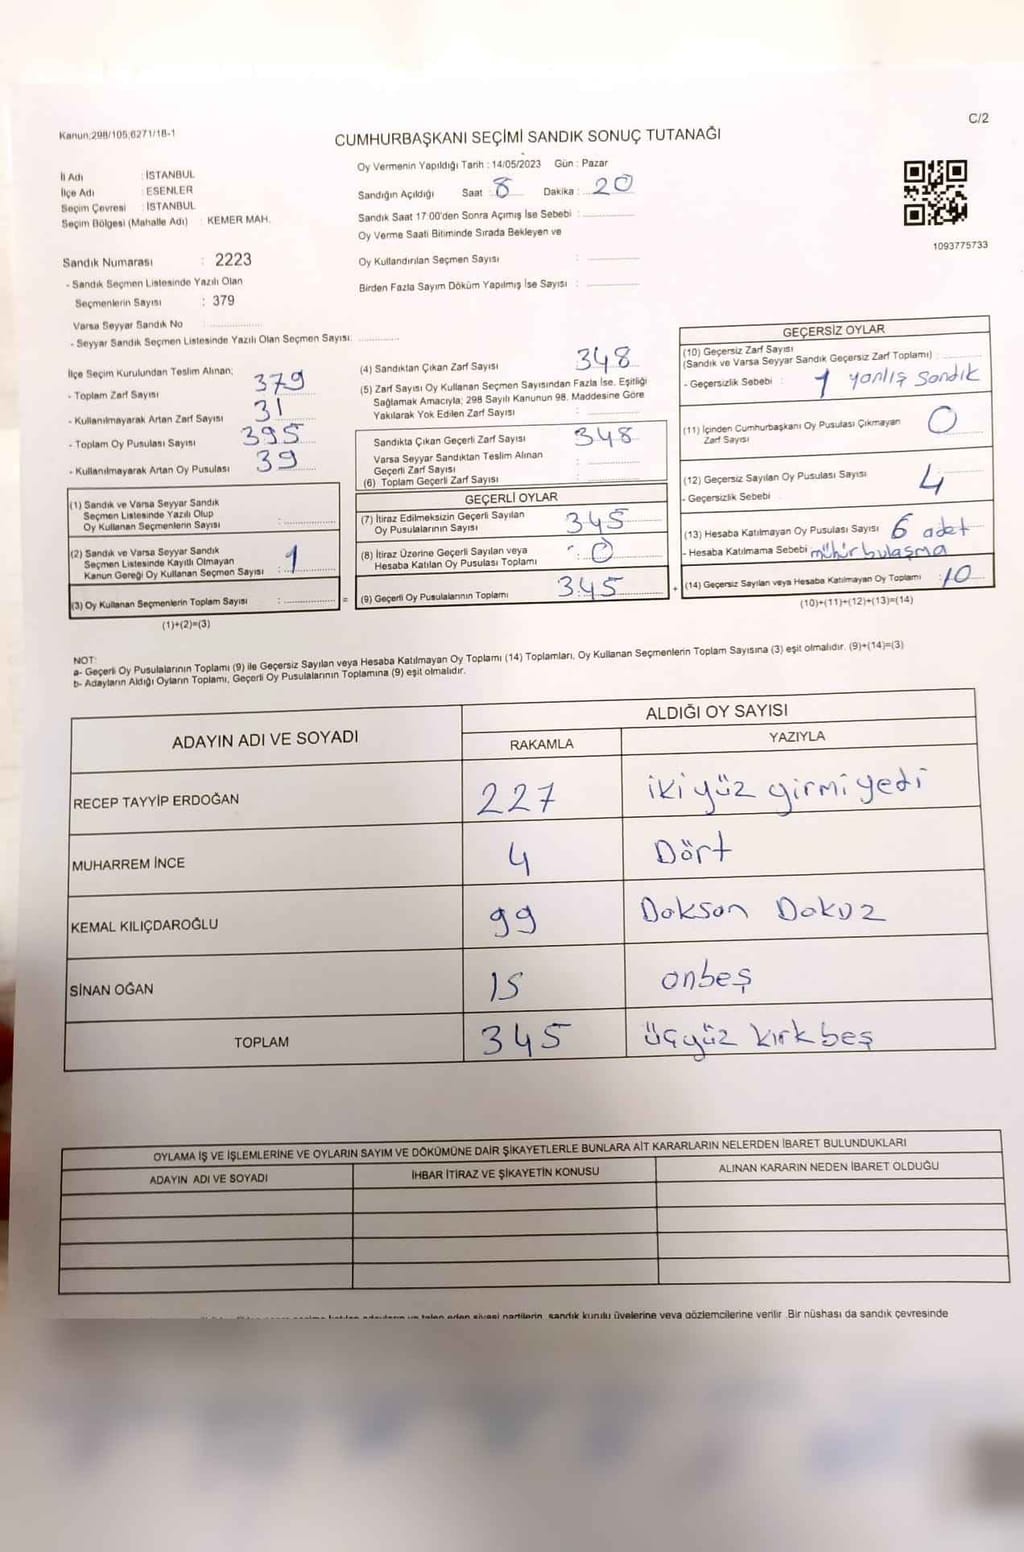 Kanun:298/105,6271/18-1
C/2
CUMHURBAŞKANI SEÇİMİ SANDIK SONUÇ TUTANAĞI
Oy Vermenin Yapıldığı Tarih : 14/05/2023 Gün : Pazar
İl Adı : İSTANBUL
İlçe Adı : ESENLER
Seçim Çevresi : İSTANBUL
Seçim Bölgesi (Mahalle Adı) : KEMER MAH.
Sandığın Açıldığı Saat : 8 Dakika : 20
Sandık Saat 17:00'den Sonra Açımış İse Sebebi :
Oy Verme Saati Bitiminde Sırada Bekleyen ve
Oy Kullandırılan Seçmen Sayısı :
Birden Fazla Sayım Döküm Yapılmış İse Sayısı :
1093775733
Sandık Numarası : 2223
- Sandık Seçmen Listesinde Yazılı Olan
Seçmenlerin Sayısı : 379
Varsa Seyyar Sandık No :
- Seyyar Sandık Seçmen Listesinde Yazılı Olan Seçmen Sayısı:
İlçe Seçim Kurulundan Teslim Alınan;
- Toplam Zarf Sayısı 379
- Kullanılmayarak Artan Zarf Sayısı 31
- Toplam Oy Pusulası Sayısı 395
- Kullanılmayarak Artan Oy Pusulası 39
(1) Sandık ve Varsa Seyyar Sandık
Seçmen Listesinde Yazılı Olup
Oy Kullanan Seçmenlerin Sayısı :
(2) Sandık ve Varsa Seyyar Sandık
Seçmen Listesinde Kayıtlı Olmayan
Kanun Gereği Oy Kullanan Seçmen Sayısı : 1
(3) Oy Kullanan Seçmenlerin Toplam Sayısı : =
(1)+(2)=(3)
(4) Sandıktan Çıkan Zarf Sayısı 348
(5) Zarf Sayısı Oy Kullanan Seçmen Sayısından Fazla İse, Eşitliği
Sağlamak Amacıyla; 298 Sayılı Kanunun 98. Maddesine Göre
Yakılarak Yok Edilen Zarf Sayısı :
Sandıkta Çıkan Geçerli Zarf Sayısı 348
Varsa Seyyar Sandıktan Teslim Alınan
Geçerli Zarf Sayısı :
(6) Toplam Geçerli Zarf Sayısı :
GEÇERLİ OYLAR
(7) İtiraz Edilmeksizin Geçerli Sayılan
Oy Pusulalarının Sayısı : 345
(8) İtiraz Üzerine Geçerli Sayılan veya
Hesaba Katılan Oy Pusulası Toplamı : 0
(9) Geçerli Oy Pusulalarının Toplamı 345 +
GEÇERSİZ OYLAR
(10) Geçersiz Zarf Sayısı
(Sandık ve Varsa Seyyar Sandık Geçersiz Zarf Toplamı) :
- Geçersizlik Sebebi : 1 yanlış sandık
(11) İçinden Cumhurbaşkanı Oy Pusulası Çıkmayan
Zarf Sayısı 0
(12) Geçersiz Sayılan Oy Pusulası Sayısı 4
- Geçersizlik Sebebi :
(13) Hesaba Katılmayan Oy Pusulası Sayısı 6 adet
- Hesaba Katılmama Sebebi mühür bulaşma
(14) Geçersiz Sayılan veya Hesaba Katılmayan Oy Toplamı : 10
(10)+(11)+(12)+(13)=(14)
NOT:
a- Geçerli Oy Pusulalarının Toplamı (9) ile Geçersiz Sayılan veya Hesaba Katılmayan Oy Toplamı (14) Toplamları, Oy Kullanan Seçmenlerin Toplam Sayısına (3) eşit olmalıdır. (9)+(14)=(3)
b- Adayların Aldığı Oyların Toplamı, Geçerli Oy Pusulalarının Toplamına (9) eşit olmalıdır.
ADAYIN ADI VE SOYADI
ALDIĞI OY SAYISI
RAKAMLA YAZIYLA
RECEP TAYYİP ERDOĞAN 227 iki yüz girmi yedi
MUHARREM İNCE 4 Dört
KEMAL KILIÇDAROĞLU 99 Doksan Dokuz
SİNAN OĞAN 15 onbeş
TOPLAM 345 üçyüz kırkbeş
OYLAMA İŞ VE İŞLEMLERİNE VE OYLARIN SAYIM VE DÖKÜMÜNE DAİR ŞİKAYETLERLE BUNLARA AİT KARARLARIN NELERDEN İBARET BULUNDUKLARI
ADAYIN ADI VE SOYADI İHBAR İTİRAZ VE ŞİKAYETİN KONUSU ALINAN KARARIN NEDEN İBARET OLDUĞU
sandık kurulu üyelerine veya gözlemcilerine verilir. Bir nüshası da sandık çevresinde